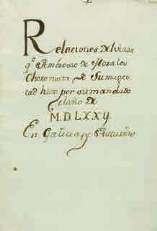 Relaciones del viaje
q̃ Ambrosio de Morales
Choronista de Su mages
tad hizo por su mandado
el año de
M.D.LXXIJ.
En Galicia y Asturias